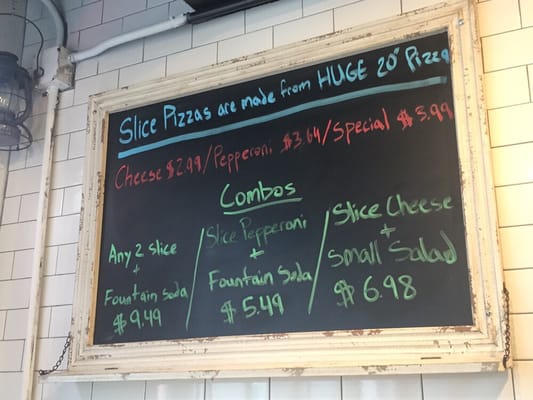 Slice Pizzas are made from HUGE 20" Pizza
Cheese $2.99/Pepperoni $3.64/Special $3.99
Combos
Any 2 slice
+
Fountain Soda
$9.49
Slice Pepperoni
+
Fountain Soda
$5.49
Slice Cheese
+
Small Salad
$6.98